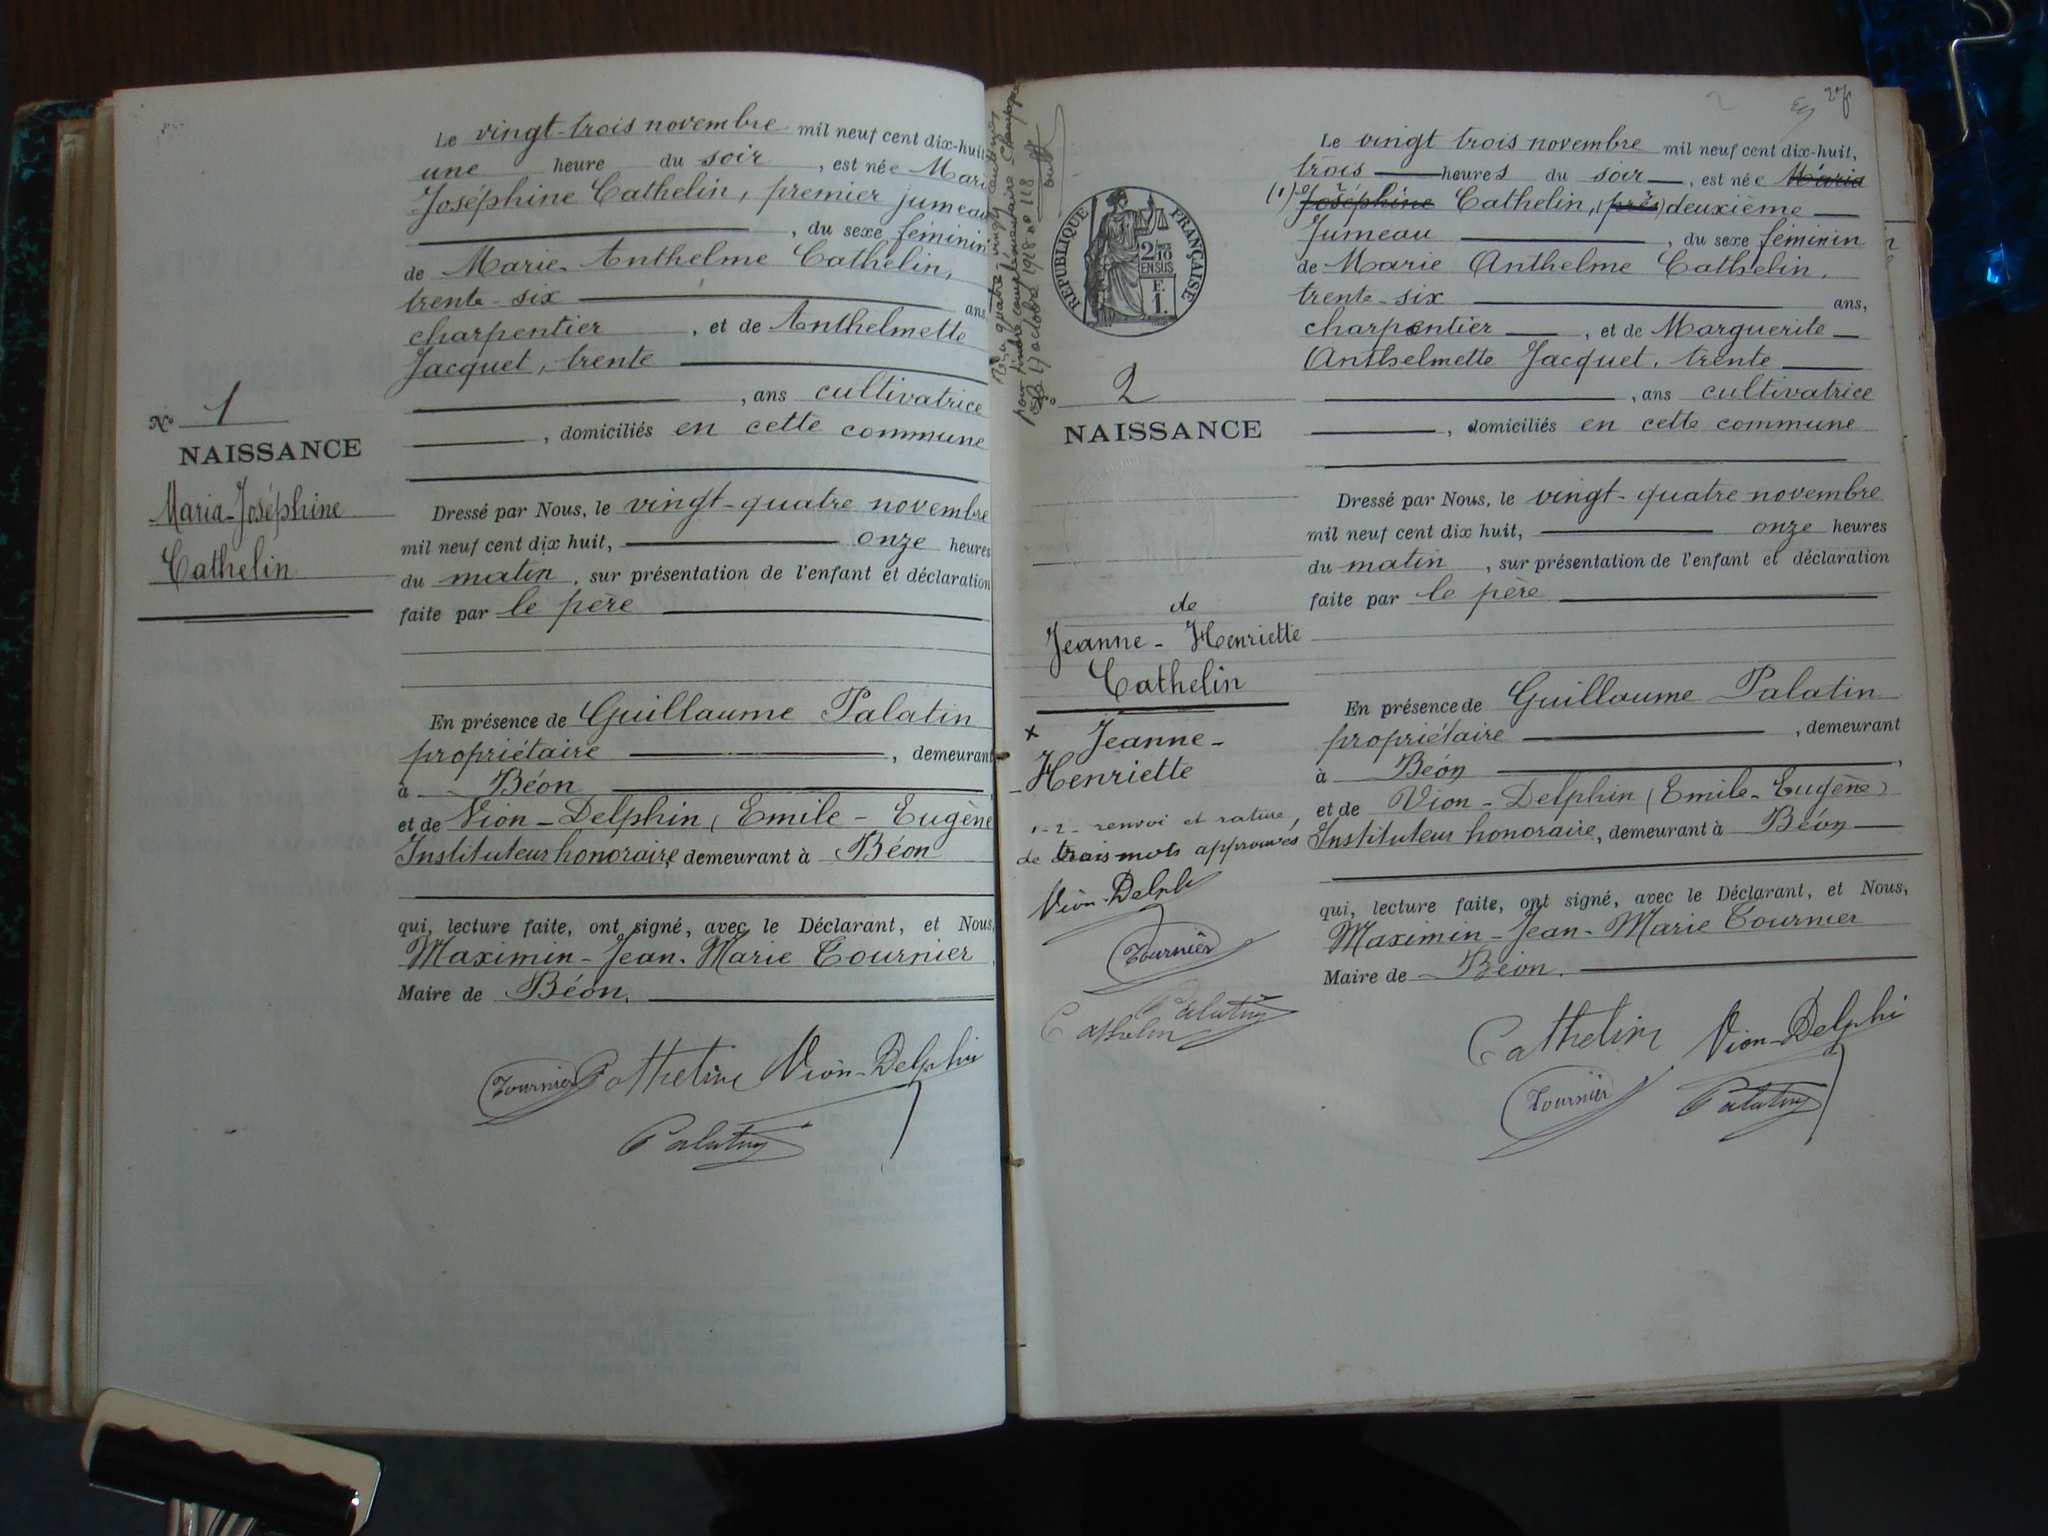 Le vingt-trois novembre mil neuf cent dix-huit
une heure du soir, est née Mari
Joséphine Cathelin, premier jumeau
, du sexe féminin
de Marie-Anthelme Cathelin,
trente-six ans
charpentier, et de Anthelmette
Jacquet, trente
, ans cultivatrice
, domiciliés en cette commune
N° 1
NAISSANCE
Maria-Joséphine
Cathelin
Dressé par Nous, le vingt-quatre novembre
mil neuf cent dix huit, onze heures
du matin, sur présentation de l'enfant et déclaration
faite par le père
En présence de Guillaume Palatin
propriétaire, demeurant
à Béon
et de Vion-Delphin (Emile-Eugène
Instituteur honoraire, demeurant à Béon
qui, lecture faite, ont signé, avec le Déclarant, et Nous,
Maximin-Jean-Marie Tournier
Maire de Béon.
Tournier Cathelin Vion-Delphin
Palatin
27
RÉPUBLIQUE FRANÇAISE
2/10
EN SUS
F.
1.
2
NAISSANCE
de
Jeanne-Henriette
Cathelin
x Jeanne-
Henriette
1-2- renvoi et rature,
de trois mots approuvés
Vion-Delphi
Tournier
Palatin
Cathelin
Le vingt trois novembre mil neuf cent dix-huit,
trois heures du soir, est née Maria
(1) Joséphine Cathelin, (pre) deuxième
Jumeau, du sexe féminin
de Marie Anthelme Cathelin,
trente-six ans,
charpentier, et de Marguerite
Anthelmette Jacquet, trente
, ans cultivatrice
, domiciliés en cette commune
Dressé par Nous, le vingt-quatre novembre
mil neuf cent dix huit, onze heures
du matin, sur présentation de l'enfant et déclaration
faite par le père
En présence de Guillaume Palatin
propriétaire, demeurant
à Béon,
et de Vion-Delphin (Emile-Eugène)
Instituteur honoraire, demeurant à Béon
qui, lecture faite, ont signé, avec le Déclarant, et Nous,
Maximin-Jean-Marie Tournier
Maire de Béon.
Cathelin Vion-Delphi
Tournier Palatin